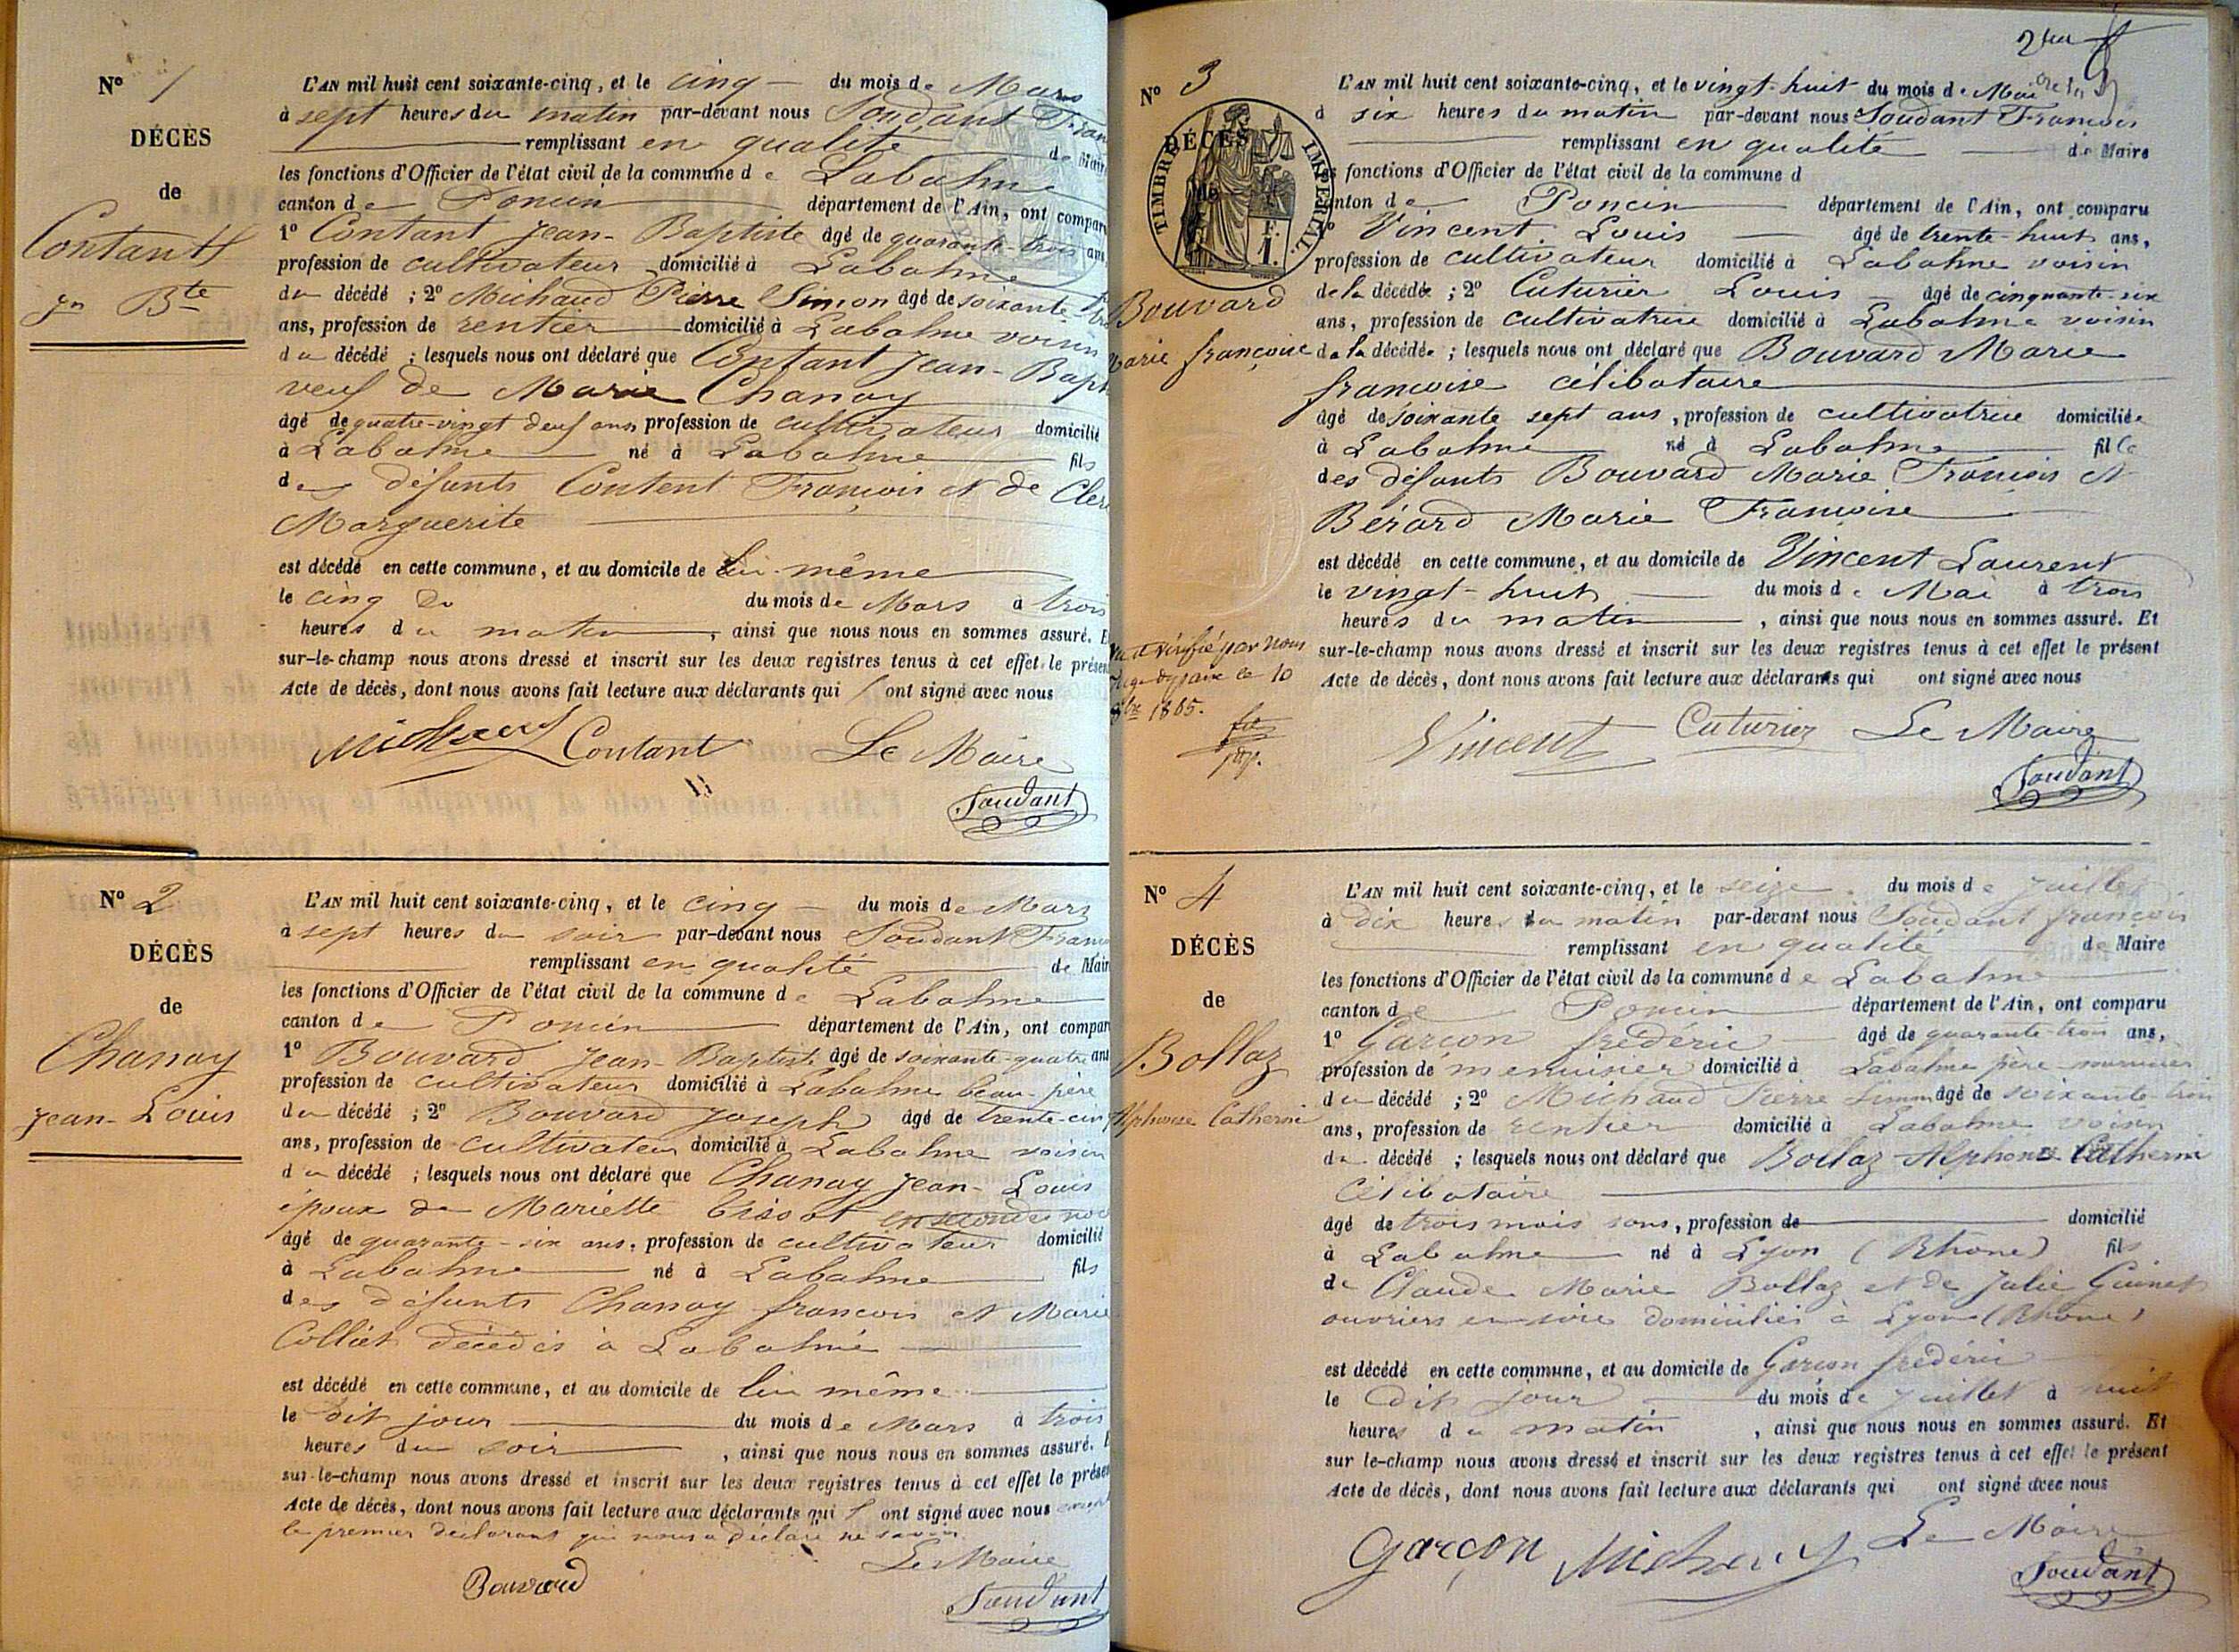 N° 1
DÉCÈS
de
Contant
Jn Bte
L'AN mil huit cent soixante-cinq, et le cinq du mois de Mars
à sept heures du matin par-devant nous Soudant Fran
remplissant en qualité de Maire
les fonctions d'Officier de l'état civil de la commune de Labalme
canton de Poncin département de l'Ain, ont comparu
1° Contant Jean-Baptiste âgé de quarante-trois ans,
profession de cultivateur domicilié à Labalme
du décédé ; 2° Michaud Pierre Simon âgé de soixante
ans, profession de rentier domicilié à Labalme voisin
du décédé ; lesquels nous ont déclaré que Contant Jean-Bapt
veuf de Marie Chanay
âgé de quatre-vingt deux ans, profession de cultivateur domicilié
à Labalme né à Labalme fils
des défunts Content François et de Cler
Marguerite
est décédé en cette commune, et au domicile de lui-même
le cinq du mois de Mars à trois
heures du matin, ainsi que nous nous en sommes assuré. E
sur-le-champ nous avons dressé et inscrit sur les deux registres tenus à cet effet le présen
Acte de décès, dont nous avons fait lecture aux déclarants qui ont signé avec nous
Michaud Contant Le Maire
Soudant
N° 2
DÉCÈS
de
Chanay
Jean-Louis
L'AN mil huit cent soixante-cinq, et le cinq du mois de Mars
à sept heures du soir par-devant nous Soudant Franc
remplissant en qualité de Mair
les fonctions d'Officier de l'état civil de la commune de Labalme
canton de Poncin département de l'Ain, ont compar
1° Bouvard Jean-Baptiste âgé de soixante-quatre ans
profession de cultivateur domicilié à Labalme beau-père
du décédé ; 2° Bouvard Joseph âgé de trente-cinq
ans, profession de cultivateur domicilié à Labalme voisin
du décédé ; lesquels nous ont déclaré que Chanay Jean-Louis
époux de Mariette en secondes noc
âgé de quarante-six ans, profession de cultivateur domicilié
à Labalme né à Labalme fils
des défunts Chanay françois et Marie
Colliet décédés à Labalme
est décédé en cette commune, et au domicile de lui même
le dit jour du mois de Mars à trois
heures du soir, ainsi que nous nous en sommes assuré. E
sur-le-champ nous avons dressé et inscrit sur les deux registres tenus à cet effet le présen
Acte de décès, dont nous avons fait lecture aux déclarants qui ont signé avec nous
le premier déclarant qui nous a déclaré ne savoir
Le Maire
Bouvard
Soudant
N° 3
DÉCÈS
TIMBRE IMPÉRIAL
Bouvard
Marie françoise
L'AN mil huit cent soixante-cinq, et le vingt-huit du mois de Mai
à six heures du matin par-devant nous Soudant François
remplissant en qualité de Maire
les fonctions d'Officier de l'état civil de la commune d
canton de Poncin département de l'Ain, ont comparu
1° Vincent Louis âgé de trente-huit ans,
profession de cultivateur domicilié à Labalme voisin
de la décédée ; 2° Cuturier Louis âgé de cinquante-six
ans, profession de cultivatrice domicilié à Labalme voisin
de la décédée ; lesquels nous ont déclaré que Bouvard Marie
françoise célibataire
âgé de soixante sept ans, profession de cultivatrice domiciliée
à Labalme né à Labalme fille
des défunts Bouvard Marie François et
Bérard Marie Françoise
est décédé en cette commune, et au domicile de Vincent Laurent
le vingt-huit du mois de Mai à trois
heures du matin, ainsi que nous nous en sommes assuré. Et
sur-le-champ nous avons dressé et inscrit sur les deux registres tenus à cet effet le présent
Acte de décès, dont nous avons fait lecture aux déclarants qui ont signé avec nous
Vu et vérifié par nous
juge de paix le 10
1865.
Vincent Cuturier Le Maire
Soudant
N° 4
DÉCÈS
de
Bollaz
Alphonse Catherin
L'AN mil huit cent soixante-cinq, et le seize du mois de juillet
à dix heures du matin par-devant nous Soudant françois
remplissant en qualité de Maire
les fonctions d'Officier de l'état civil de la commune de Labalme
canton de Poncin département de l'Ain, ont comparu
1° Garçon frédéric âgé de quarante-trois ans,
profession de menuisier domicilié à Labalme père nourricier
du décédé ; 2° Michaud Pierre Simon âgé de soixante-trois
ans, profession de rentier domicilié à Labalme voisin
du décédé ; lesquels nous ont déclaré que Bollaz Alphonse Catherin
célibataire
âgé de trois mois ans, profession de domicilié
à Labalme né à Lyon (Rhône) fils
de Claude Marie Bollaz et de Julie Guinet
ouvriers en soie domiciliés à Lyon (Rhône)
est décédé en cette commune, et au domicile de Garçon frédéric
le dit jour du mois de juillet à huit
heures du matin, ainsi que nous nous en sommes assuré. Et
sur le-champ nous avons dressé et inscrit sur les deux registres tenus à cet effet le présent
Acte de décès, dont nous avons fait lecture aux déclarants qui ont signé avec nous
Garçon Michaud Le Maire
Soudant